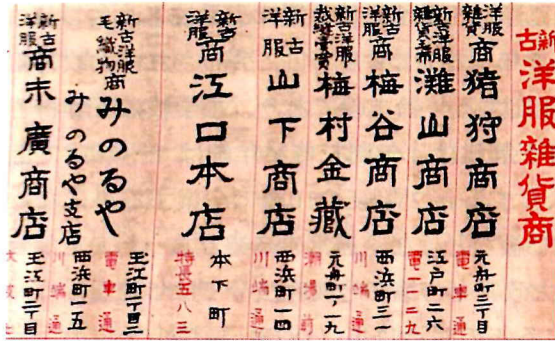 新古洋服雜貨商
洋服雜貨商 猪狩商店 元舟町二丁目 電車通
新古洋服雜貨毛布 灘山商店 江戸町二六 電一一二九
新古洋服商 梅谷商店 西浜町三一 川端通
新古洋服 梅村金藏 元舟町一ノ一九
新古洋服 山下商店 西浜町一四 川端通
新古洋服商 江口本店 本下町 特長五八三
新古洋服毛織物商 みのるや 玉江町一丁目二 電車通
みのるや支店 西浜町一五 川端通
新古洋服商 末廣商店 玉江町二丁目